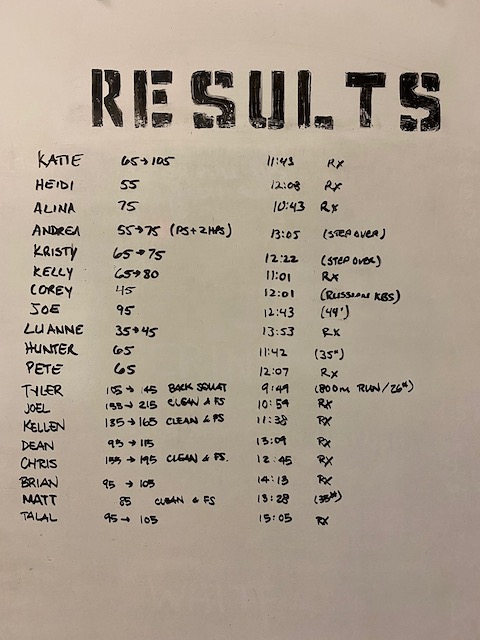 RESULTS
KATIE 65→105 11:43 RX
HEIDI 55 12:08 RX
ALINA 75 10:43 RX
ANDREA 55→75 (PS+2HPS) 13:05 (STEP OVER)
KRISTY 65→75 12:22 (STEP OVER)
KELLY 65→80 11:01 RX
COREY 45 12:01 (RUSSIAN KBS)
JOE 95 12:43 (44#)
LUANNE 35→45 13:53 RX
HUNTER 65 11:42 (35#)
PETE 65 12:07 RX
TYLER 105→145 BACK SQUAT 9:49 (800m RUN/26#)
JOEL 155→215 CLEAN & FS 10:59 RX
KELLEN 135→165 CLEAN & FS 11:38 RX
DEAN 95→115 13:09 RX
CHRIS 155→195 CLEAN & FS. 12:45 RX
BRIAN 95→105 14:13 RX
MATT 85 CLEAN & FS 13:28 (35#)
TALAL 95→105 15:05 RX